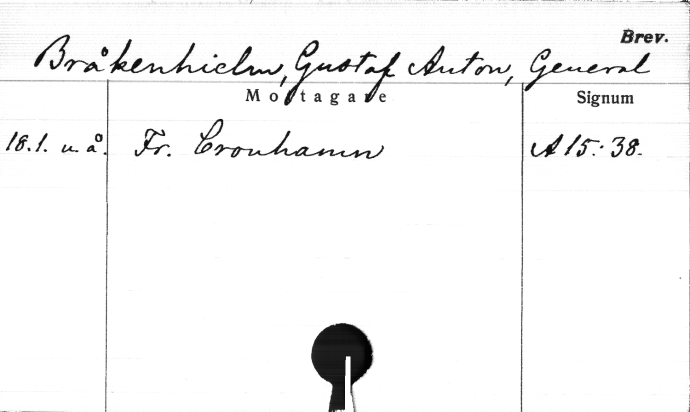 Brev.
Bråkenhielm, Gustaf Anton, General
Mottagare Signum
18.1. u.å. Fr. Cronhamn A 15: 38.